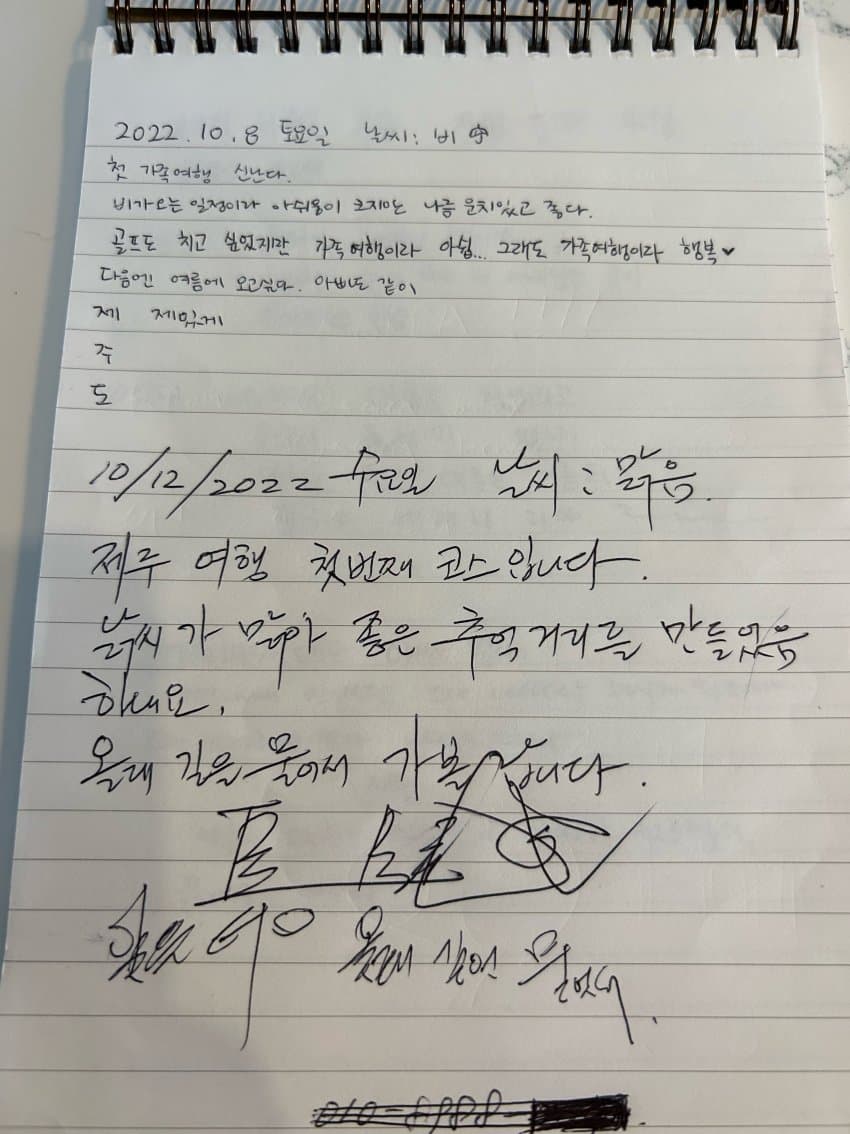 2022.10.8 토요일 날씨: 비
첫 가족여행 신난다.
비가오는 일정이라 아쉬움이 크지만 나름 운치있고 좋다.
골프도 치고 싶었지만 가족여행이라 아쉽... 그래도 가족여행이라 행복♥
다음엔 여름에 오고싶다. 아빠도 같이
제 제밌게
주
도
10/12/2022 수요일 날씨: 맑음.
제주 여행 첫번째 코스입니다.
날씨가 맑아 좋은 추억거리를 만들었음
하네요.
올래 길을 물어서 가볼 랍니다.